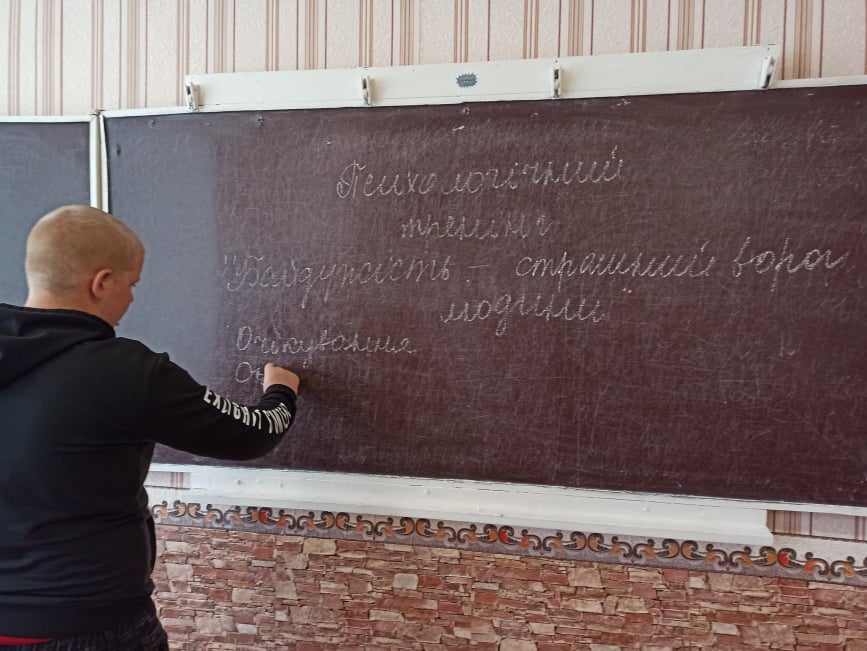 Психологічний
тренінг
"Байдужість - страшний ворог
людини"
Очікування